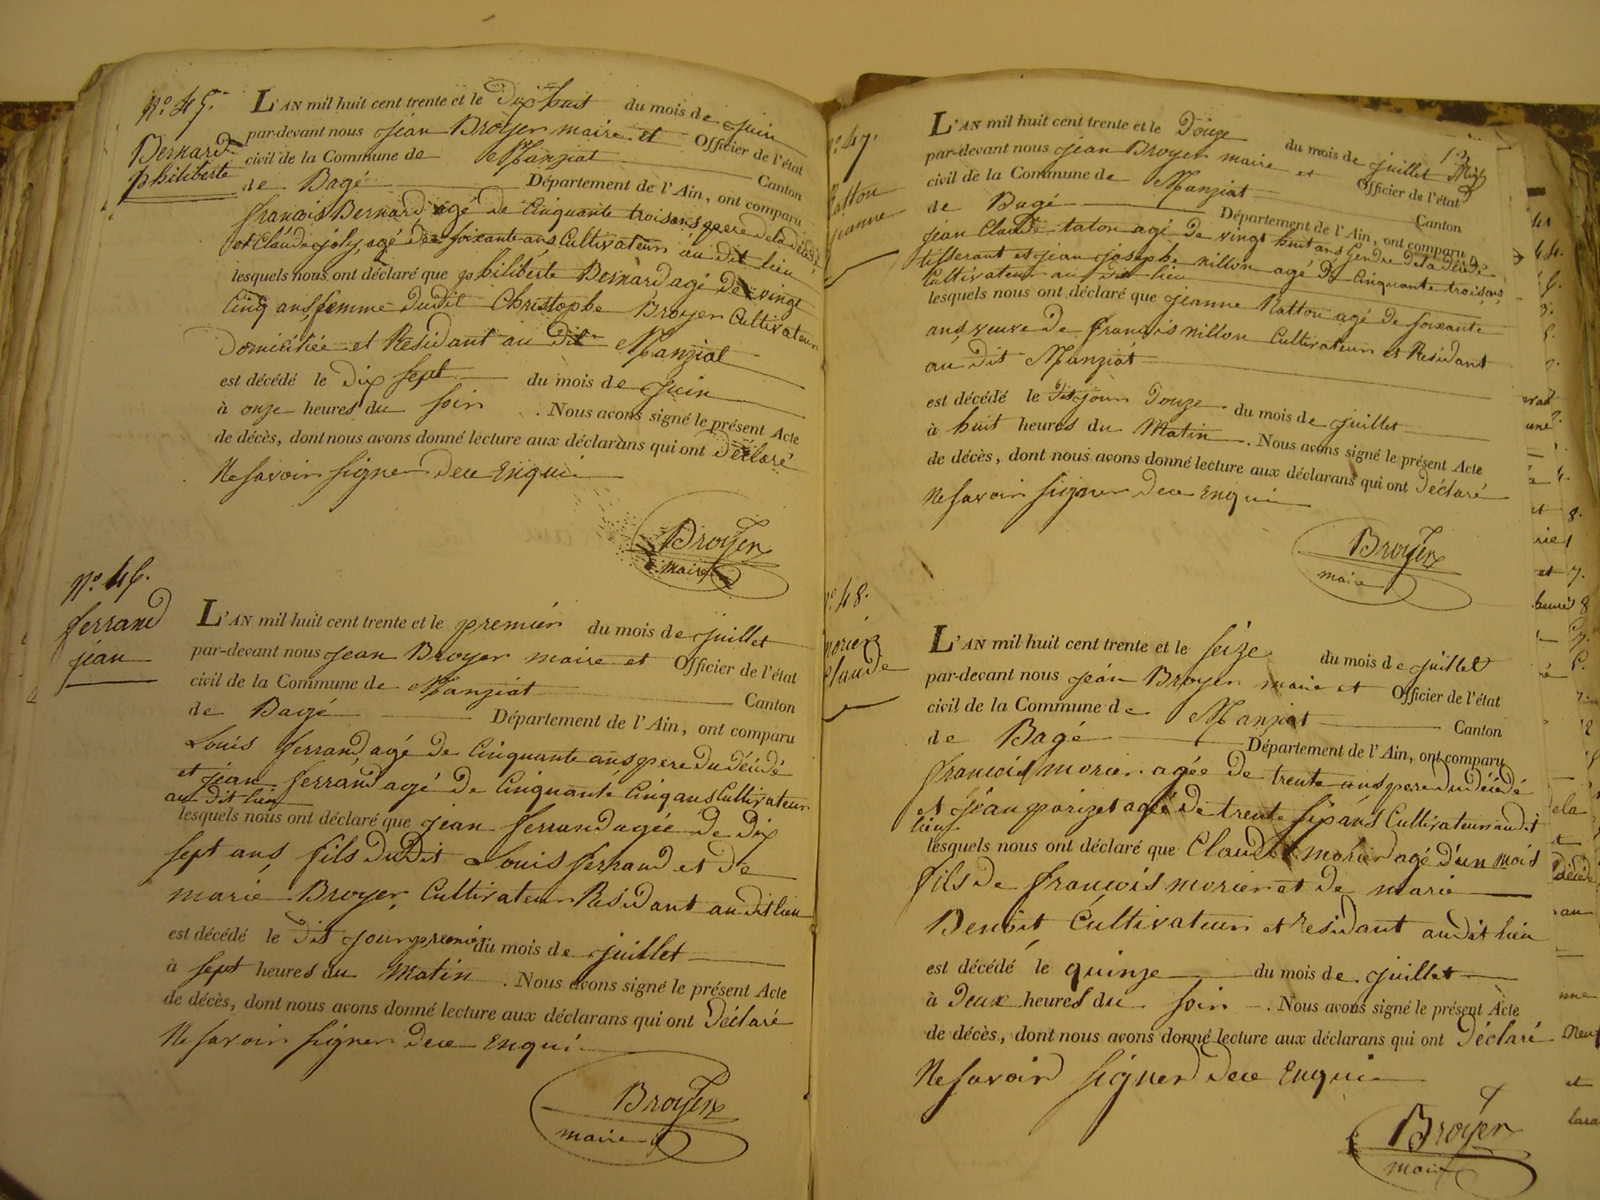 N.° 45.
Bernard
philiberte
L'AN mil huit cent trente et le Dix huit du mois de juin
par-devant nous jean Broyer maire et Officier de l'état
civil de la Commune de Manziat Canton
de Bagé Département de l'Ain, ont comparu
françois Bernard agé de Cinquante trois ans pere de la décédé
et Claude joly agé de soixante ans Cultivateur au dit lieu
lesquels nous ont déclaré que philiberte Bernard agé de vingt
Cinq ans femme dudit Christophe Broyer Cultivateur
Domiciliée et Résidant au dit Manziat
est décédé le Dix sept du mois de juin
à onze heures du soir . Nous avons signé le présent Acte
de décès, dont nous avons donné lecture aux déclarans qui ont Déclaré
Ne savoir signer de ce Enquis
Broyer
maire
N.° 46.
ferrand
jean
L'AN mil huit cent trente et le premier du mois de juillet
par-devant nous jean Broyer maire et Officier de l'état
civil de la Commune de Manziat Canton
de Bagé Département de l'Ain, ont comparu
Louis ferrand agé de Cinquante ans pere du décédé
et jean ferrand agé de Cinquante Cinq ans Cultivateur
au dit lieu
lesquels nous ont déclaré que jean ferrand agée de Dix
sept ans fils dudit Louis ferrand et de
marie Broyer Cultivateur Résidant au dit lieu
est décédé le Dit jour premier du mois de juillet
à sept heures du Matin . Nous avons signé le présent Acte
de décès, dont nous avons donné lecture aux déclarans qui ont Déclaré
Ne savoir signer de ce Enqui
Broyer
maire
n.° 47.
Ratton
jeanne
L'AN mil huit cent trente et le Douze du mois de juillet
par-devant nous jean Broyer maire et Officier de l'état
civil de la Commune de Manziat Canton
de Bagé Département de l'Ain, ont comparu
jean Claude taton agé de vingt huit ans Gendre de la décédé
tisserant et jean joseph nillon agé de Cinquante trois ans
Cultivateur au dit lieu
lesquels nous ont déclaré que jeanne Ratton agé de soixante
ans veuve de françois nillon Cultivateur et Résidant
au dit Manziat
est décédé le Dit jour Douze du mois de juillet
à huit heures du Matin . Nous avons signé le présent Acte
de décès, dont nous avons donné lecture aux déclarans qui ont Déclaré
Ne savoir signer de ce Enqui
Broyer
maire
n.° 48.
morier
Claude
L'AN mil huit cent trente et le seize du mois de juillet
par-devant nous jean Broyer maire et Officier de l'état
civil de la Commune de Manziat Canton
de Bagé Département de l'Ain, ont comparu
françois morier agée de trente ans pere du décédé
et jean parizet agé de trente six ans Cultivateur au dit
lieu
lesquels nous ont déclaré que Claude morier agé d'un mois
fils de françois morier et de marie
Benoit Cultivateur et residant au dit lieu
est décédé le quinze du mois de juillet
à Deux heures du soir . Nous avons signé le présent Acte
de décès, dont nous avons donné lecture aux déclarans qui ont Déclaré
Ne savoir signer de ce Enqui
Broyer
maire